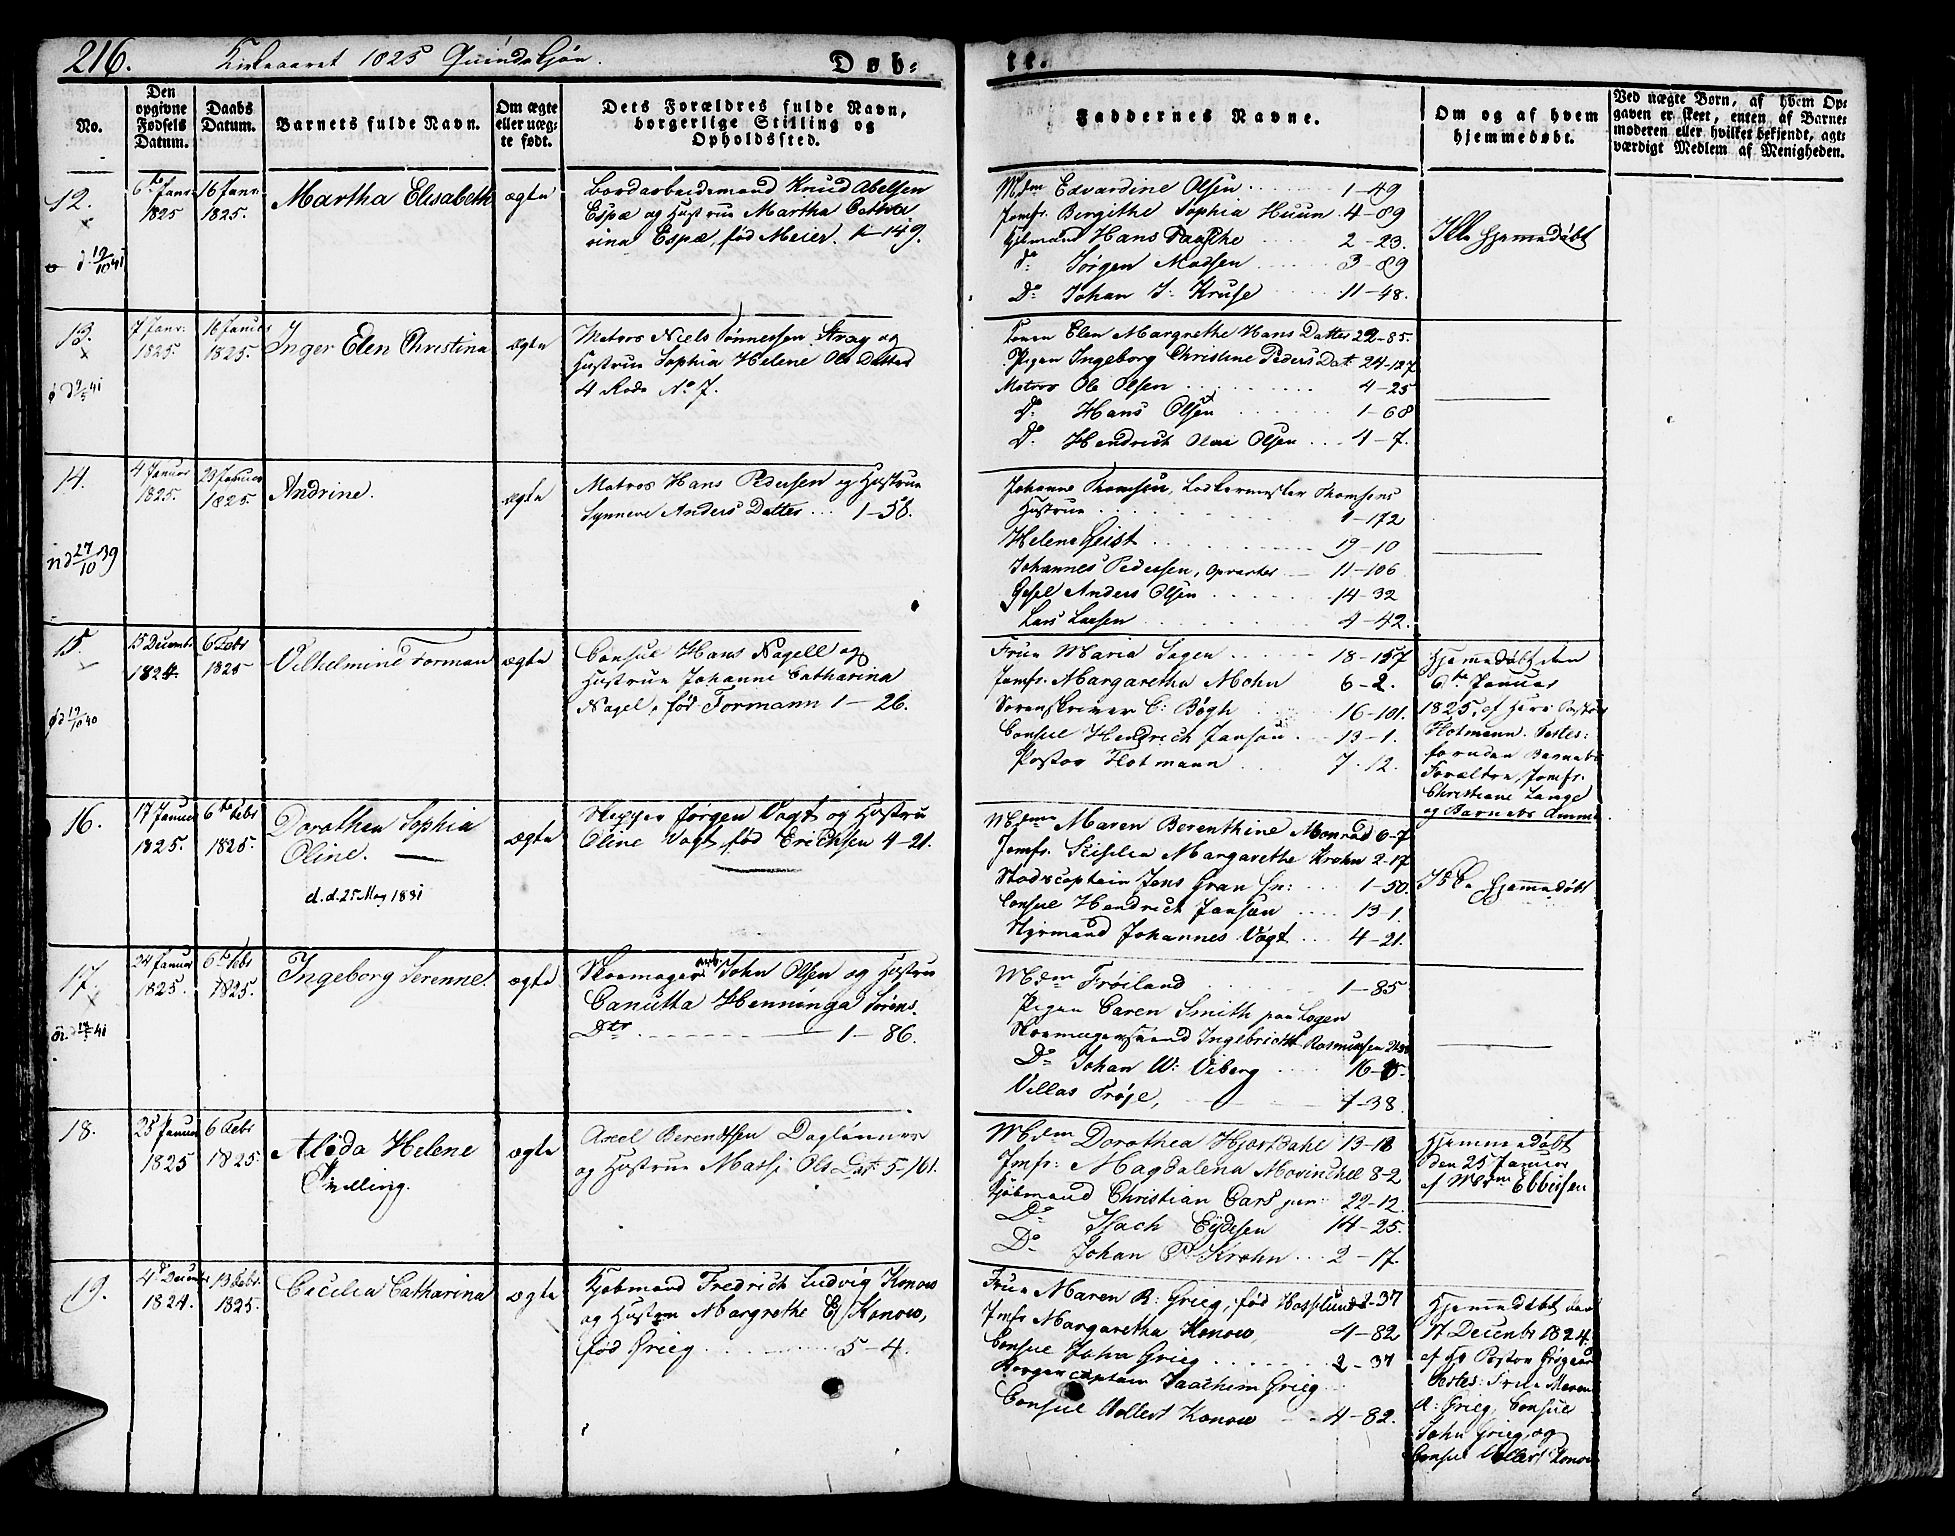 216. Kirkeaaret 1825 Quindekjøn.
Døb-
te.
No.
Den opgivne Fødsels Datum.
Daabs Datum.
Barnets fulde Navn.
Om ægte eller uæg-te født.
Dets Forældres fulde Navn, borgerlige Stilling og Opholdssted.
Faddernes Navne.
Om og af hvem hjemmedøbt.
Ved uægte Børn, af hvem Op-
gaven er skeet, enten af Barne-
moderen eller hvilket bekjendt, agt-
værdigt Medlem af Menigheden.
12.
6te Janr. 1825
16 Janr. 1825.
Martha Elisabeth
ægte
Bordarbeidsmand Knud Abelsen
Espæ og Hustrue Martha Catha
rina Espæ, fød Meier. 1-149.
Mdm Edvardine Olsen 1-49
Jomfr. Bergithe Sophia Huun 4-89
Kjøbmand Hans Paasche 2-23.
do Jørgen Madsen 3-89
Do Johan J: Kruse 11-48.
Ikke Hjemmedøbt
13.
7 Janr. 1825.
16 Januar 1825.
Inger Elen Christina
ægte
Matros Niels Tønnessen Stray og
Hustrue Sophia Helene Ols Datter
4 Rode No 7.
Konen Elen Margrethe Hans Datter 22-85.
Pigen Ingeborg Christine Peders Dat. 24-127
Matros Ole Olsen 4-25
Do Hans Olsen 1-68
Do Hendrich Olai Olsen 4-7.
14.
4 Januar 1825.
23 Januar 1825
Andrine.
ægte
Matros Hans Pedersen og Hustrue
Synneve Anders Datter 1-58.
Johanne Thomsen, Lodkermester Thomsens
Hustrue 1-172
Helene Geist 19-10
Johannes Pedersen, Opvarter 11-106
Gesel Anders Olsen 14-32
Lars Larsen 4-42.
15.
15 Decembr 1824.
6 Febr 1825
Vilhelmine Forman
ægte
Consul Hans Nagell og
Hustrue Johanne Catharina
Nagel, fød Formann 1-26.
Frue Maria Sagen 18-157
Jomfr. Margaretha Mohn 6-2.
Sorenskriver C: Bøgh 16-101.
Consul Hendrich Jansen 13-1.
Pastor Hotmann 7-12.
Hjemmedøbt den
6te Januar
1825, af Herr Pastor
Hotmann. Testes:
foruden Barnets
Forældre, Jomfr.
Christiane Lange
og Barnets Amme.
16.
17 Januar 1825.
6te Febr 1825.
Dorothea Sophia
Oline.
d. d. 25 May 1831
ægte
Skipper Jørgen Vogt og Hustru
Oline Vogt, fød Erichsen 4-21.
Mdme Maren Berenthine Monrad 6-7
Jomfr. Margarethe Krohn 2-17
Stadscaptain Jens Gran Sn: 1-50.
Consul Hendrich Jansen 13-1.
Styrmand Johannes Vogt 4-21.
Ikke Hjemmedøbt
17.
24 Januar 1825.
6te Febr 1825.
Ingeborg Serenne.
ægte
Skoemager John Olsen og Hustru
Canutta Henninga Sørens
Dtr 1-86.
Mdm Frøiland 1-85
Pigen Caren Smith paa Logen
Skoemagersvend Ingebricth Rasmussen
Do Johan W: Viberg
Villas Trøje, 7-38.
18.
25 Januar 1825
6 Febr 1825.
Aleda Helene
Tvilling.
ægte
Axel Berendtsen Daglønner
og Hustrue Massi Ols Dat. 5-161.
Mdm Dorothea Hjortdahl
Jmfr: Magdalena Movinchel 8-2
Kjøbmand Christian Carl jun: 22-12.
Do Isach Eydesen 14-25.
Do Johan P. Krohn 2-17.
Hjemmedøbt
den 25 Januar
af Mdm Ebbesen
19.
4de Decembr 1824.
13 Febr 1825.
Cecilia Catharina
ægte
Kjøbmand Fredrich Ludvig Konow
og Hustru Margrethe E. Konow,
fød Grieg 5-4.
Frue Maren R: Grieg, fød Hasslund 2-37
Jmfr Margaretha Konow, 4-82
Consul John Grieg 2-37
Borgercaptain Joachim Grieg
Consul Vollert Konow 4-82.
Hjemmedøbt den
17 Decembr 1824
af Hr Pastor
Testes: Frue Maren
R: Grieg, Consul
John Grieg, og
Consul Vollert Konow